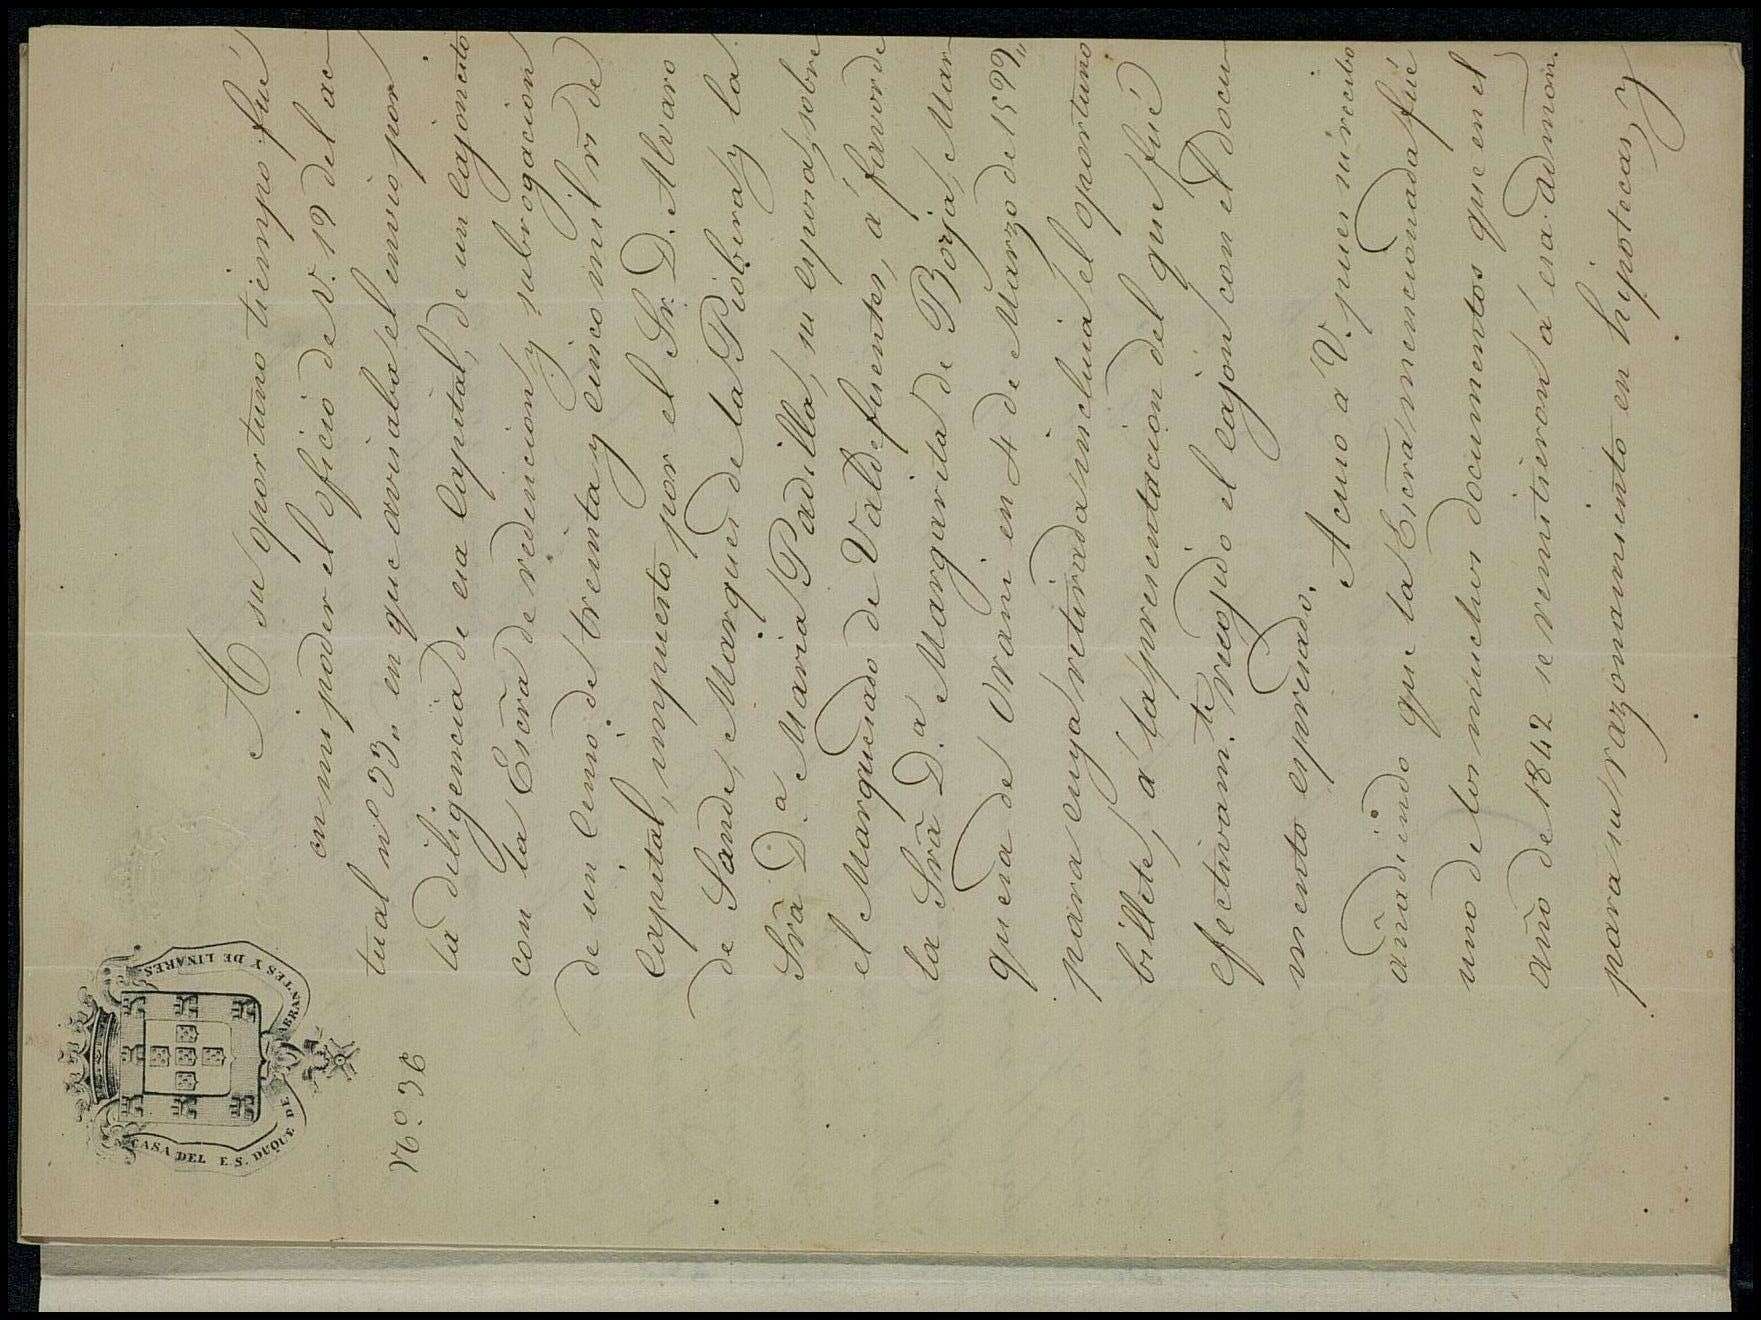 CASA DEL E. S. DUQUE DE ABRANTES Y DE LINARES.
Nº. 36
A su oportuno tiempo fué
en mi poder el oficio de V. 19 del ac
tual nº 33,, en que avisaba el envio por
la diligencia de esa Capital, de un Cajoncito
con la Escrã de redencion y subrogacion
de un Censo de treinta y cinco mil r.s de
Capital, impuesto por el Sr. D. Alvaro
de Sande, Marques de la Piobera, y la
Srã D.a Maria Padilla, su esposa, sobre
el Marquesado de Valdefuentes, á favor de
la Srã D.a Margarita de Borja, Mar
quesa de Orani en 4 de Marzo de 1599,,
para cuya retirada incluia el oportuno
billete, á la presentacion del que fué
efectivam.te recojido el cajon con el docu
mento espresado.
Acuso á V. pues mi recibo
añadiendo que la Escrã mencionada fué
uno de los muchos documentos que en el
año de 1842 se remitieron á esa admõn.
para su razonamiento en hipotecas, y